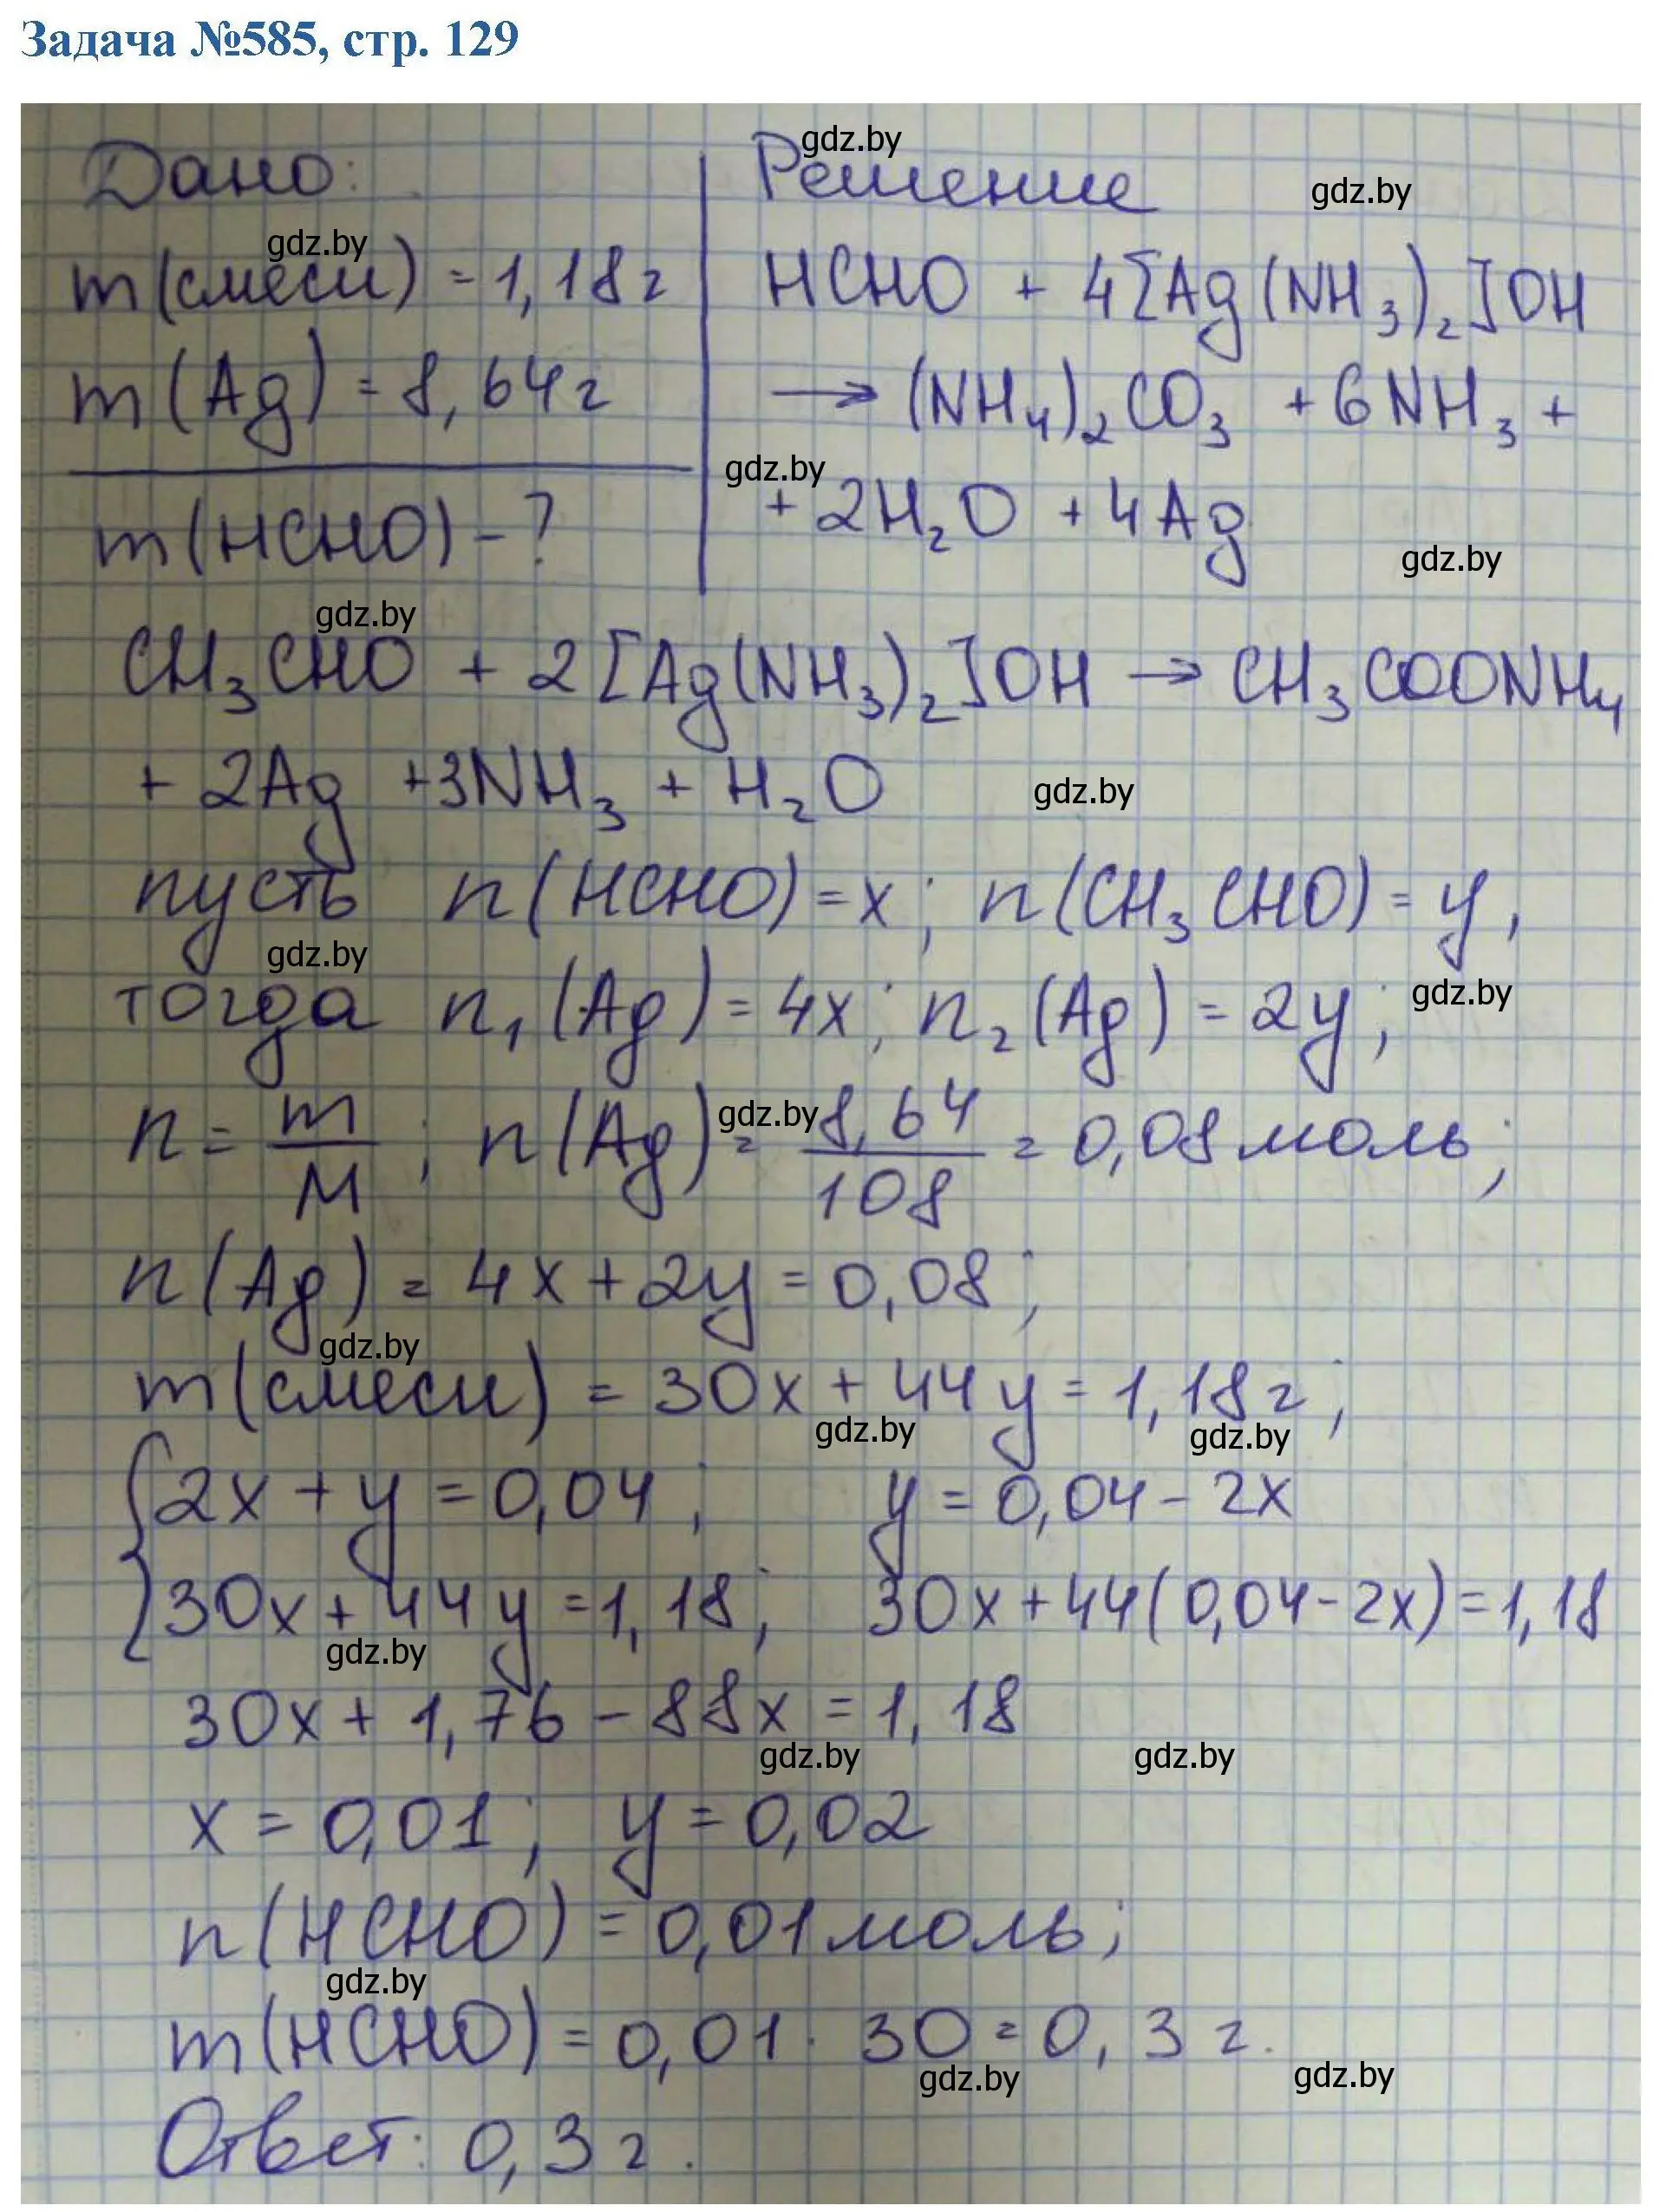 Задача №585, стр. 129
gdz.by
Дано:
Решение
gdz.by
gdz.by
m(смеси) = 1,18г
HCHO + 4[Ag(NH₃)₂]OH
m(Ag) = 8,64г
→ (NH₄)₂CO₃ + 6NH₃ +
gdz.by
m(HCHO) - ?
+ 2H₂O + 4Ag
gdz.by
gdz.by
CH₃CHO + 2[Ag(NH₃)₂]OH → CH₃COONH₄
+ 2Ag +3NH₃ + H₂O
gdz.by
пусть n(HCHO) = x; n(CH₃CHO) = y,
gdz.by
тогда n₁(Ag) = 4x; n₂(Ag) = 2y;
gdz.by
n = m/M; n(Ag) = 8,64/108 = 0,08 моль;
gdz.by
n(Ag) = 4x + 2y = 0,08;
gdz.by
m(смеси) = 30x + 44y = 1,18г;
gdz.by
gdz.by
{2x + y = 0,04; y = 0,04 - 2x
30x + 44y = 1,18; 30x + 44(0,04 - 2x) = 1,18
gdz.by
30x + 1,76 - 88x = 1,18
gdz.by
gdz.by
x = 0,01; y = 0,02
n(HCHO) = 0,01 моль;
gdz.by
m(HCHO) = 0,01 · 30 = 0,3 г.
gdz.by
gdz.by
Ответ: 0,3 г.